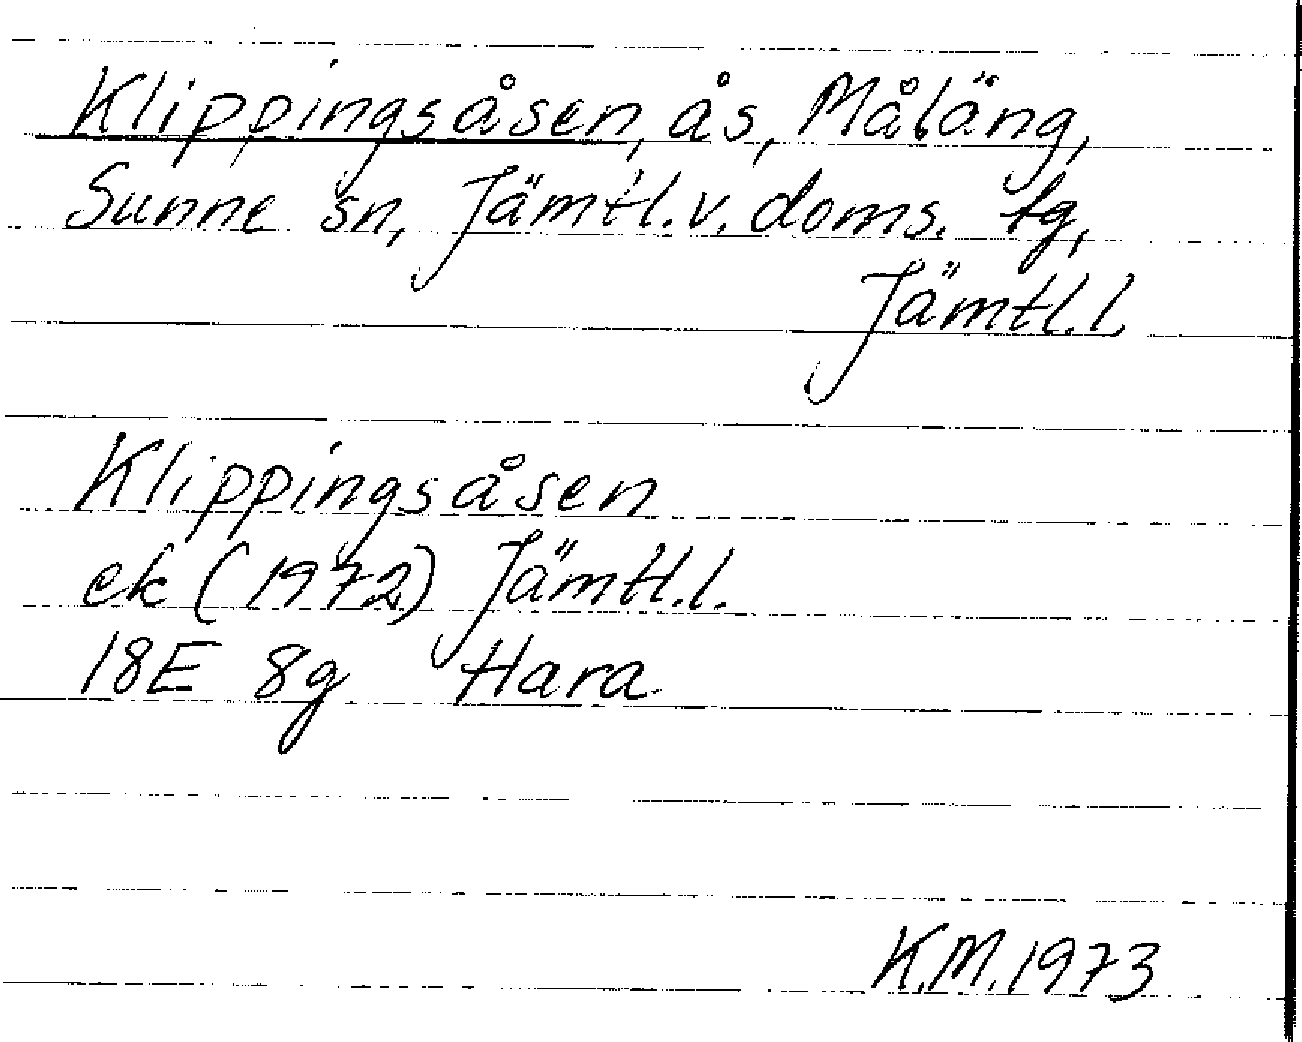 Klippingsåsen, ås, Måläng,
Sunne sn, Jämtl. v. doms. tg,
Jämtl. l.
Klippingsåsen
ek (1972) Jämtl. l.
18E 8g Hara
K.M. 1973